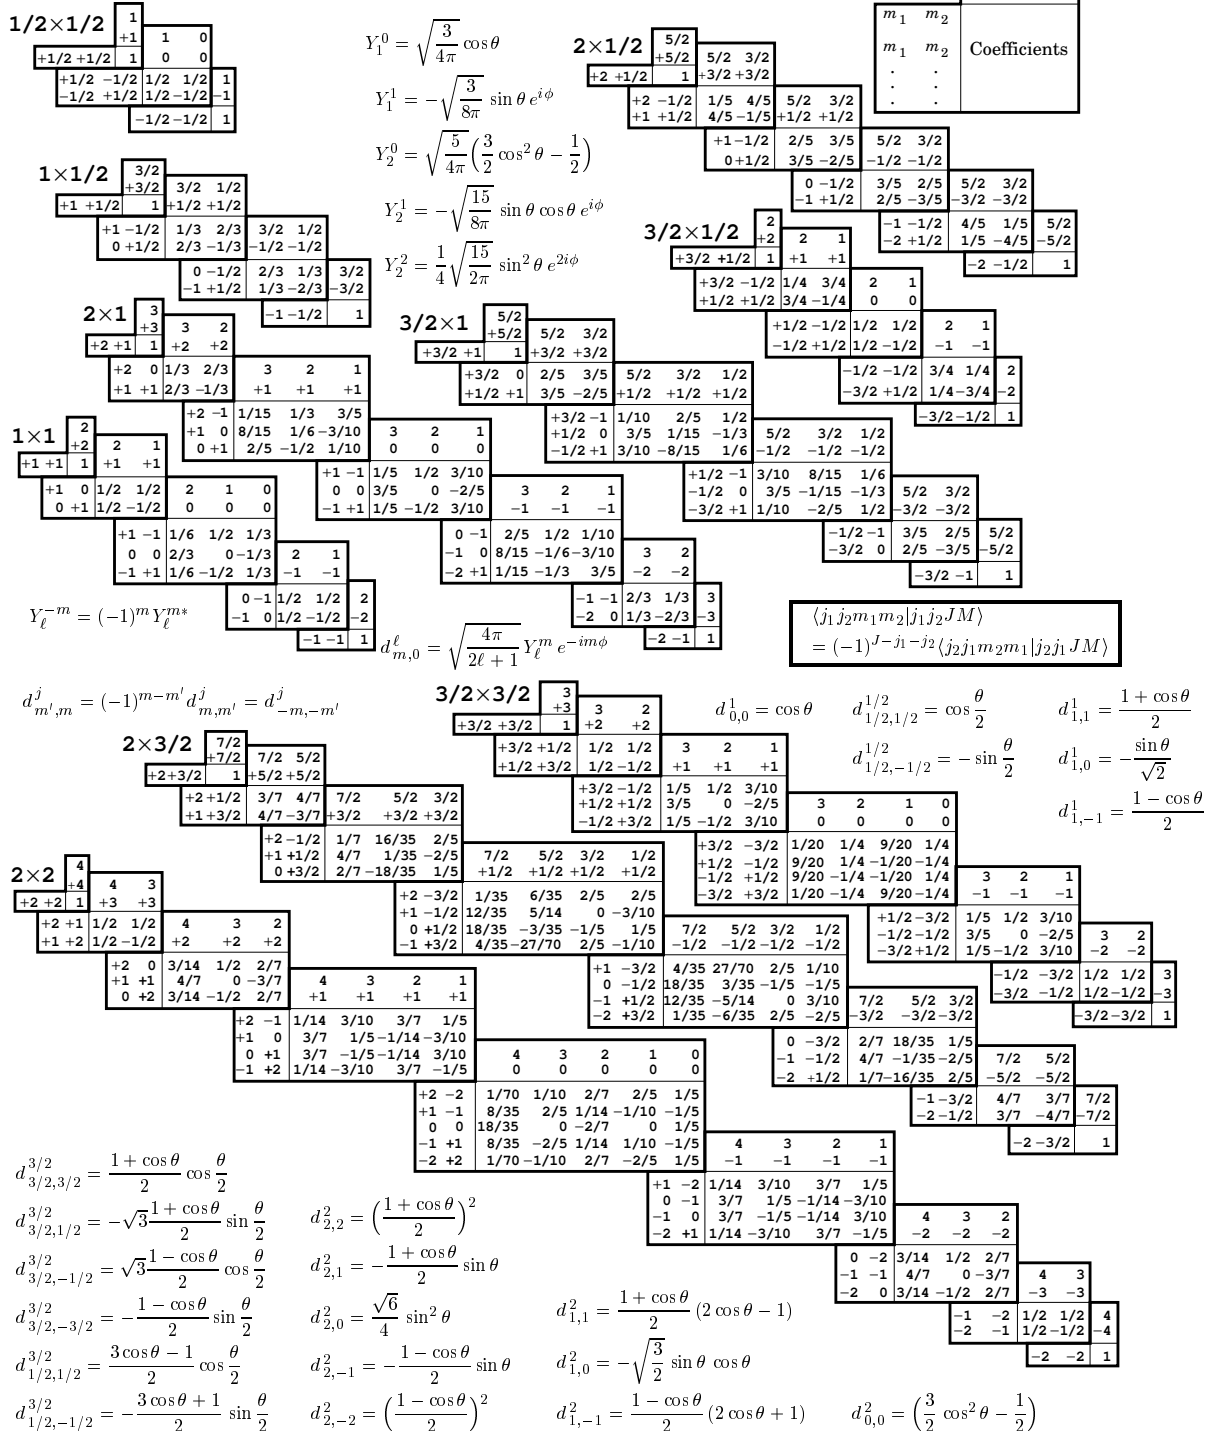 1/2×1/2
1
+1 1 0
+1/2 +1/2 1 0 0
+1/2 −1/2 1/2 1/2 1
−1/2 +1/2 1/2 −1/2 −1
−1/2 −1/2 1
Y_1^0 = √(3/4π) cos θ
Y_1^1 = −√(3/8π) sin θ e^{iφ}
Y_2^0 = √(5/4π) (3/2 cos² θ − 1/2)
Y_2^1 = −√(15/8π) sin θ cos θ e^{iφ}
Y_2^2 = 1/4 √(15/2π) sin² θ e^{2iφ}
2×1/2
5/2
+5/2 5/2 3/2
+2 +1/2 1 +3/2 +3/2
+2 −1/2 1/5 4/5 5/2 3/2
+1 +1/2 4/5 −1/5 +1/2 +1/2
+1 −1/2 2/5 3/5 5/2 3/2
0 +1/2 3/5 −2/5 −1/2 −1/2
0 −1/2 3/5 2/5 5/2 3/2
−1 +1/2 2/5 −3/5 −3/2 −3/2
−1 −1/2 4/5 1/5 5/2
−2 +1/2 1/5 −4/5 −5/2
−2 −1/2 1
m_1 m_2
m_1 m_2 Coefficients
. .
. .
. .
1×1/2
3/2
+3/2 3/2 1/2
+1 +1/2 1 +1/2 +1/2
+1 −1/2 1/3 2/3 3/2 1/2
0 +1/2 2/3 −1/3 −1/2 −1/2
0 −1/2 2/3 1/3 3/2
−1 +1/2 1/3 −2/3 −3/2
−1 −1/2 1
3/2×1/2
2
+2 2 1
+3/2 +1/2 1 +1 +1
+3/2 −1/2 1/4 3/4 2 1
+1/2 +1/2 3/4 −1/4 0 0
+1/2 −1/2 1/2 1/2 2 1
−1/2 +1/2 1/2 −1/2 −1 −1
−1/2 −1/2 3/4 1/4 2
−3/2 +1/2 1/4 −3/4 −2
−3/2 −1/2 1
2×1
3
+3 3 2
+2 +1 1 +2 +2
+2 0 1/3 2/3 3 2 1
+1 +1 2/3 −1/3 +1 +1 +1
+2 −1 1/15 1/3 3/5
+1 0 8/15 1/6 −3/10 3 2 1
0 +1 2/5 −1/2 1/10 0 0 0
+1 −1 1/5 1/2 3/10
0 0 3/5 0 −2/5 3 2 1
−1 +1 1/5 −1/2 3/10 −1 −1 −1
0 −1 2/5 1/2 1/10
−1 0 8/15 −1/6 −3/10 3 2
−2 +1 1/15 −1/3 3/5 −2 −2
−1 −1 2/3 1/3 3
−2 0 1/3 −2/3 −3
−2 −1 1
3/2×1
5/2
+5/2 5/2 3/2
+3/2 +1 1 +3/2 +3/2
+3/2 0 2/5 3/5 5/2 3/2 1/2
+1/2 +1 3/5 −2/5 +1/2 +1/2 +1/2
+3/2 −1 1/10 2/5 1/2
+1/2 0 3/5 1/15 −1/3 5/2 3/2 1/2
−1/2 +1 3/10 −8/15 1/6 −1/2 −1/2 −1/2
+1/2 −1 3/10 8/15 1/6
−1/2 0 3/5 −1/15 −1/3 5/2 3/2
−3/2 +1 1/10 −2/5 1/2 −3/2 −3/2
−1/2 −1 3/5 2/5 5/2
−3/2 0 2/5 −3/5 −5/2
−3/2 −1 1
1×1
2
+2 2 1
+1 +1 1 +1 +1
+1 0 1/2 1/2 2 1 0
0 +1 1/2 −1/2 0 0 0
+1 −1 1/6 1/2 1/3
0 0 2/3 0 −1/3 2 1
−1 +1 1/6 −1/2 1/3 −1 −1
0 −1 1/2 1/2 2
−1 0 1/2 −1/2 −2
−1 −1 1
Y_ℓ^{−m} = (−1)^m Y_ℓ^{m*}
d^ℓ_{m,0} = √(4π/(2ℓ + 1)) Y_ℓ^m e^{−imφ}
⟨j_1 j_2 m_1 m_2|j_1 j_2 J M⟩
= (−1)^{J−j_1−j_2} ⟨j_2 j_1 m_2 m_1|j_2 j_1 J M⟩
d^j_{m′,m} = (−1)^{m−m′} d^j_{m,m′} = d^j_{−m,−m′}
3/2×3/2
3
+3 3 2
+3/2 +3/2 1 +2 +2
+3/2 +1/2 1/2 1/2 3 2 1
+1/2 +3/2 1/2 −1/2 +1 +1 +1
+3/2 −1/2 1/5 1/2 3/10
+1/2 +1/2 3/5 0 −2/5 3 2 1 0
−1/2 +3/2 1/5 −1/2 3/10 0 0 0 0
+3/2 −3/2 1/20 1/4 9/20 1/4
+1/2 −1/2 9/20 1/4 −1/20 −1/4
−1/2 +1/2 9/20 −1/4 −1/20 1/4 3 2 1
−3/2 +3/2 1/20 −1/4 9/20 −1/4 −1 −1 −1
+1/2 −3/2 1/5 1/2 3/10
−1/2 −1/2 3/5 0 −2/5 3 2
−3/2 +1/2 1/5 −1/2 3/10 −2 −2
−1/2 −3/2 1/2 1/2 3
−3/2 −1/2 1/2 −1/2 −3
−3/2 −3/2 1
d^1_{0,0} = cos θ
d^{1/2}_{1/2,1/2} = cos θ/2
d^{1/2}_{1/2,−1/2} = −sin θ/2
d^1_{1,1} = (1 + cos θ)/2
d^1_{1,0} = −sin θ/√2
d^1_{1,−1} = (1 − cos θ)/2
2×3/2
7/2
+7/2 7/2 5/2
+2 +3/2 1 +5/2 +5/2
+2 +1/2 3/7 4/7 7/2 5/2 3/2
+1 +3/2 4/7 −3/7 +3/2 +3/2 +3/2
+2 −1/2 1/7 16/35 2/5
+1 +1/2 4/7 1/35 −2/5 7/2 5/2 3/2 1/2
0 +3/2 2/7 −18/35 1/5 +1/2 +1/2 +1/2 +1/2
+2 −3/2 1/35 6/35 2/5 2/5
+1 −1/2 12/35 5/14 0 −3/10
0 +1/2 18/35 −3/35 −1/5 1/5 7/2 5/2 3/2 1/2
−1 +3/2 4/35 −27/70 2/5 −1/10 −1/2 −1/2 −1/2 −1/2
+1 −3/2 4/35 27/70 2/5 1/10
0 −1/2 18/35 3/35 −1/5 −1/5
−1 +1/2 12/35 −5/14 0 3/10 7/2 5/2 3/2
−2 +3/2 1/35 −6/35 2/5 −2/5 −3/2 −3/2 −3/2
0 −3/2 2/7 18/35 1/5
−1 −1/2 4/7 −1/35 −2/5 7/2 5/2
−2 +1/2 1/7 −16/35 2/5 −5/2 −5/2
−1 −3/2 4/7 3/7 7/2
−2 −1/2 3/7 −4/7 −7/2
−2 −3/2 1
2×2
4
+4 4 3
+2 +2 1 +3 +3
+2 +1 1/2 1/2 4 3 2
+1 +2 1/2 −1/2 +2 +2 +2
+2 0 3/14 1/2 2/7
+1 +1 4/7 0 −3/7 4 3 2 1
0 +2 3/14 −1/2 2/7 +1 +1 +1 +1
+2 −1 1/14 3/10 3/7 1/5
+1 0 3/7 1/5 −1/14 −3/10
0 +1 3/7 −1/5 −1/14 3/10 4 3 2 1 0
−1 +2 1/14 −3/10 3/7 −1/5 0 0 0 0 0
+2 −2 1/70 1/10 2/7 2/5 1/5
+1 −1 8/35 2/5 1/14 −1/10 −1/5
0 0 18/35 0 −2/7 0 1/5
−1 +1 8/35 −2/5 1/14 1/10 −1/5 4 3 2 1
−2 +2 1/70 −1/10 2/7 −2/5 1/5 −1 −1 −1 −1
+1 −2 1/14 3/10 3/7 1/5
0 −1 3/7 1/5 −1/14 −3/10
−1 0 3/7 −1/5 −1/14 3/10 4 3 2
−2 +1 1/14 −3/10 3/7 −1/5 −2 −2 −2
0 −2 3/14 1/2 2/7
−1 −1 4/7 0 −3/7 4 3
−2 0 3/14 −1/2 2/7 −3 −3
−1 −2 1/2 1/2 4
−2 −1 1/2 −1/2 −4
−2 −2 1
d^{3/2}_{3/2,3/2} = (1 + cos θ)/2 cos θ/2
d^{3/2}_{3/2,1/2} = −√3 (1 + cos θ)/2 sin θ/2
d^{3/2}_{3/2,−1/2} = √3 (1 − cos θ)/2 cos θ/2
d^{3/2}_{3/2,−3/2} = −(1 − cos θ)/2 sin θ/2
d^{3/2}_{1/2,1/2} = (3 cos θ − 1)/2 cos θ/2
d^{3/2}_{1/2,−1/2} = −(3 cos θ + 1)/2 sin θ/2
d^2_{2,2} = ((1 + cos θ)/2)^2
d^2_{2,1} = −(1 + cos θ)/2 sin θ
d^2_{2,0} = √6/4 sin² θ
d^2_{2,−1} = −(1 − cos θ)/2 sin θ
d^2_{2,−2} = ((1 − cos θ)/2)^2
d^2_{1,1} = (1 + cos θ)/2 (2 cos θ − 1)
d^2_{1,0} = −√(3/2) sin θ cos θ
d^2_{1,−1} = (1 − cos θ)/2 (2 cos θ + 1)
d^2_{0,0} = (3/2 cos² θ − 1/2)